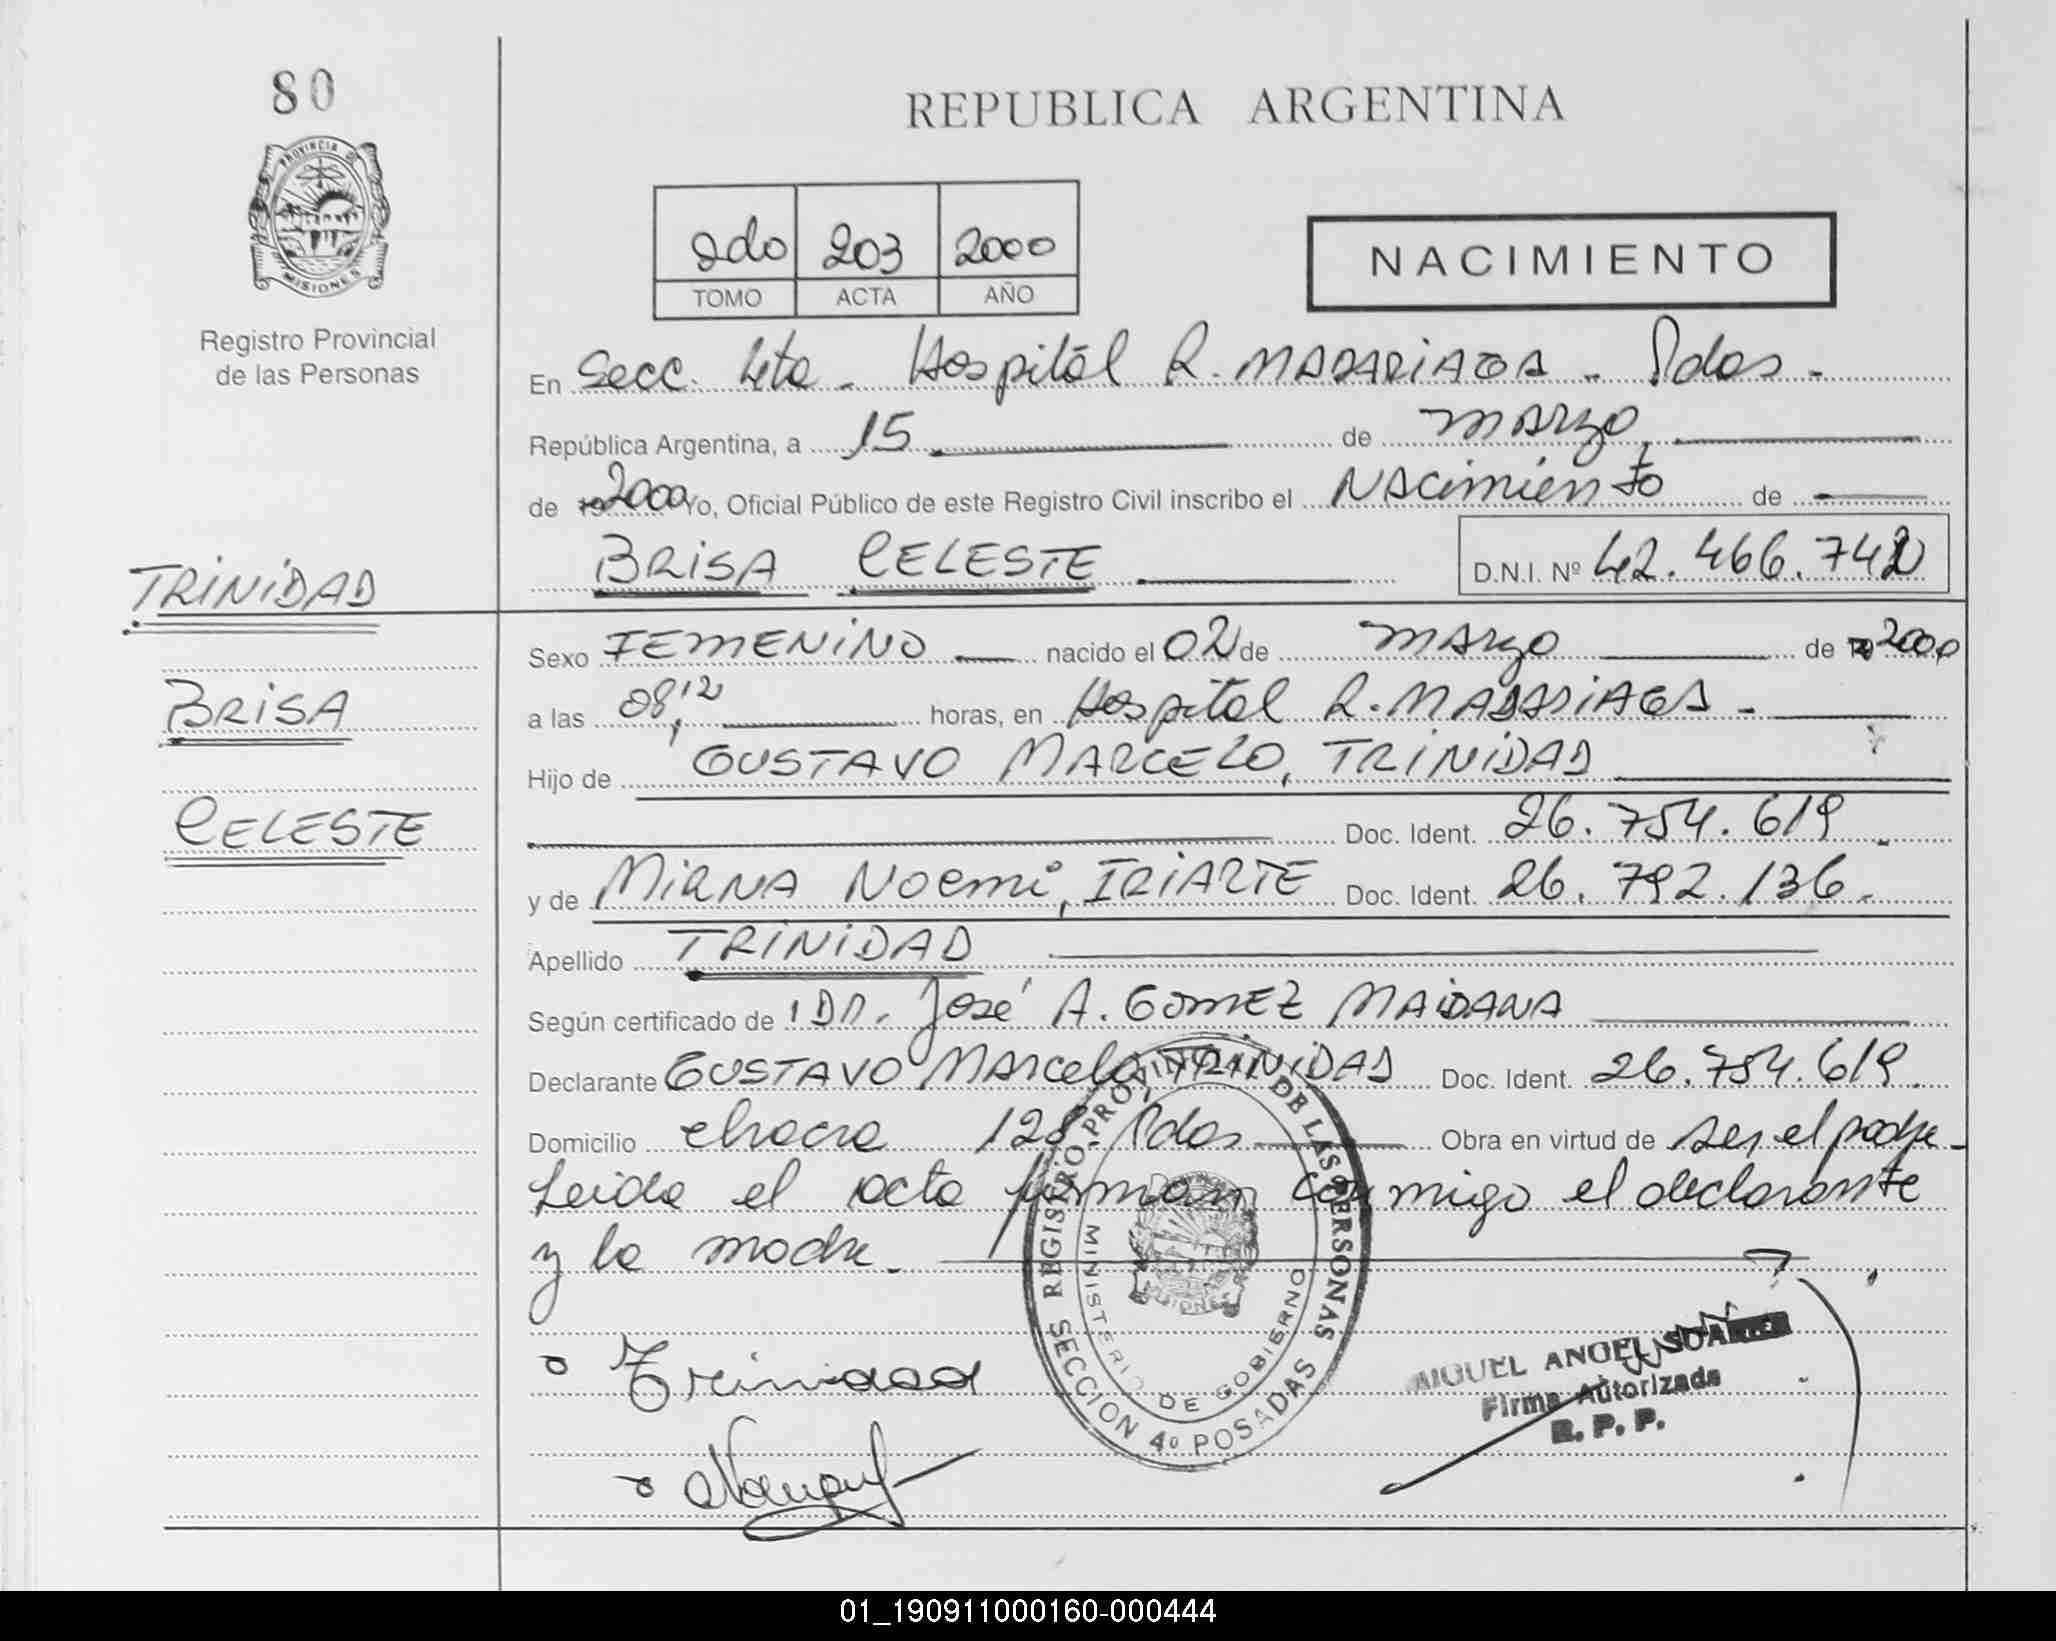 80
REPUBLICA ARGENTINA
PROVINCIA DE MISIONES
2do 203 2000
TOMO ACTA AÑO
NACIMIENTO
Registro Provincial
de las Personas
En Secc. 4ta - Hospital R. MADARIAGA - Pdas -
República Argentina, a 15 de MARZO
de 19 2000 Yo, Oficial Público de este Registro Civil inscribo el NAcimiento de
BRISA CELESTE D.N.I. Nº 42.466.742
TRINIDAD
Sexo FEMENINO nacido el 02 de MARZO de 19 2000
BRISA
a las 08,12 horas, en Hospital R. MADARIAGA -
Hijo de GUSTAVO MARCELO, TRINIDAD
CELESTE
Doc. Ident. 26.754.619
y de MIRNA NOEMI, IRIARTE Doc. Ident. 26.792.136.
Apellido TRINIDAD
Según certificado de DR. José A. GOMEZ MAIDANA
Declarante GUSTAVO MARcelo, TRINIDAD Doc. Ident. 26.754.619.
Domicilio chacra 128. Pdas Obra en virtud de ser el padre -
Leida el acta firman conmigo el declarante
y la madre.
REGISTRO PROVINCIAL DE LAS PERSONAS
MINISTERIO DE GOBIERNO
MISIONES
SECCION 4º POSADAS
MIGUEL ANGEL
Firma Autorizada
R. P. P.
Trinidad
01_190911000160-000444